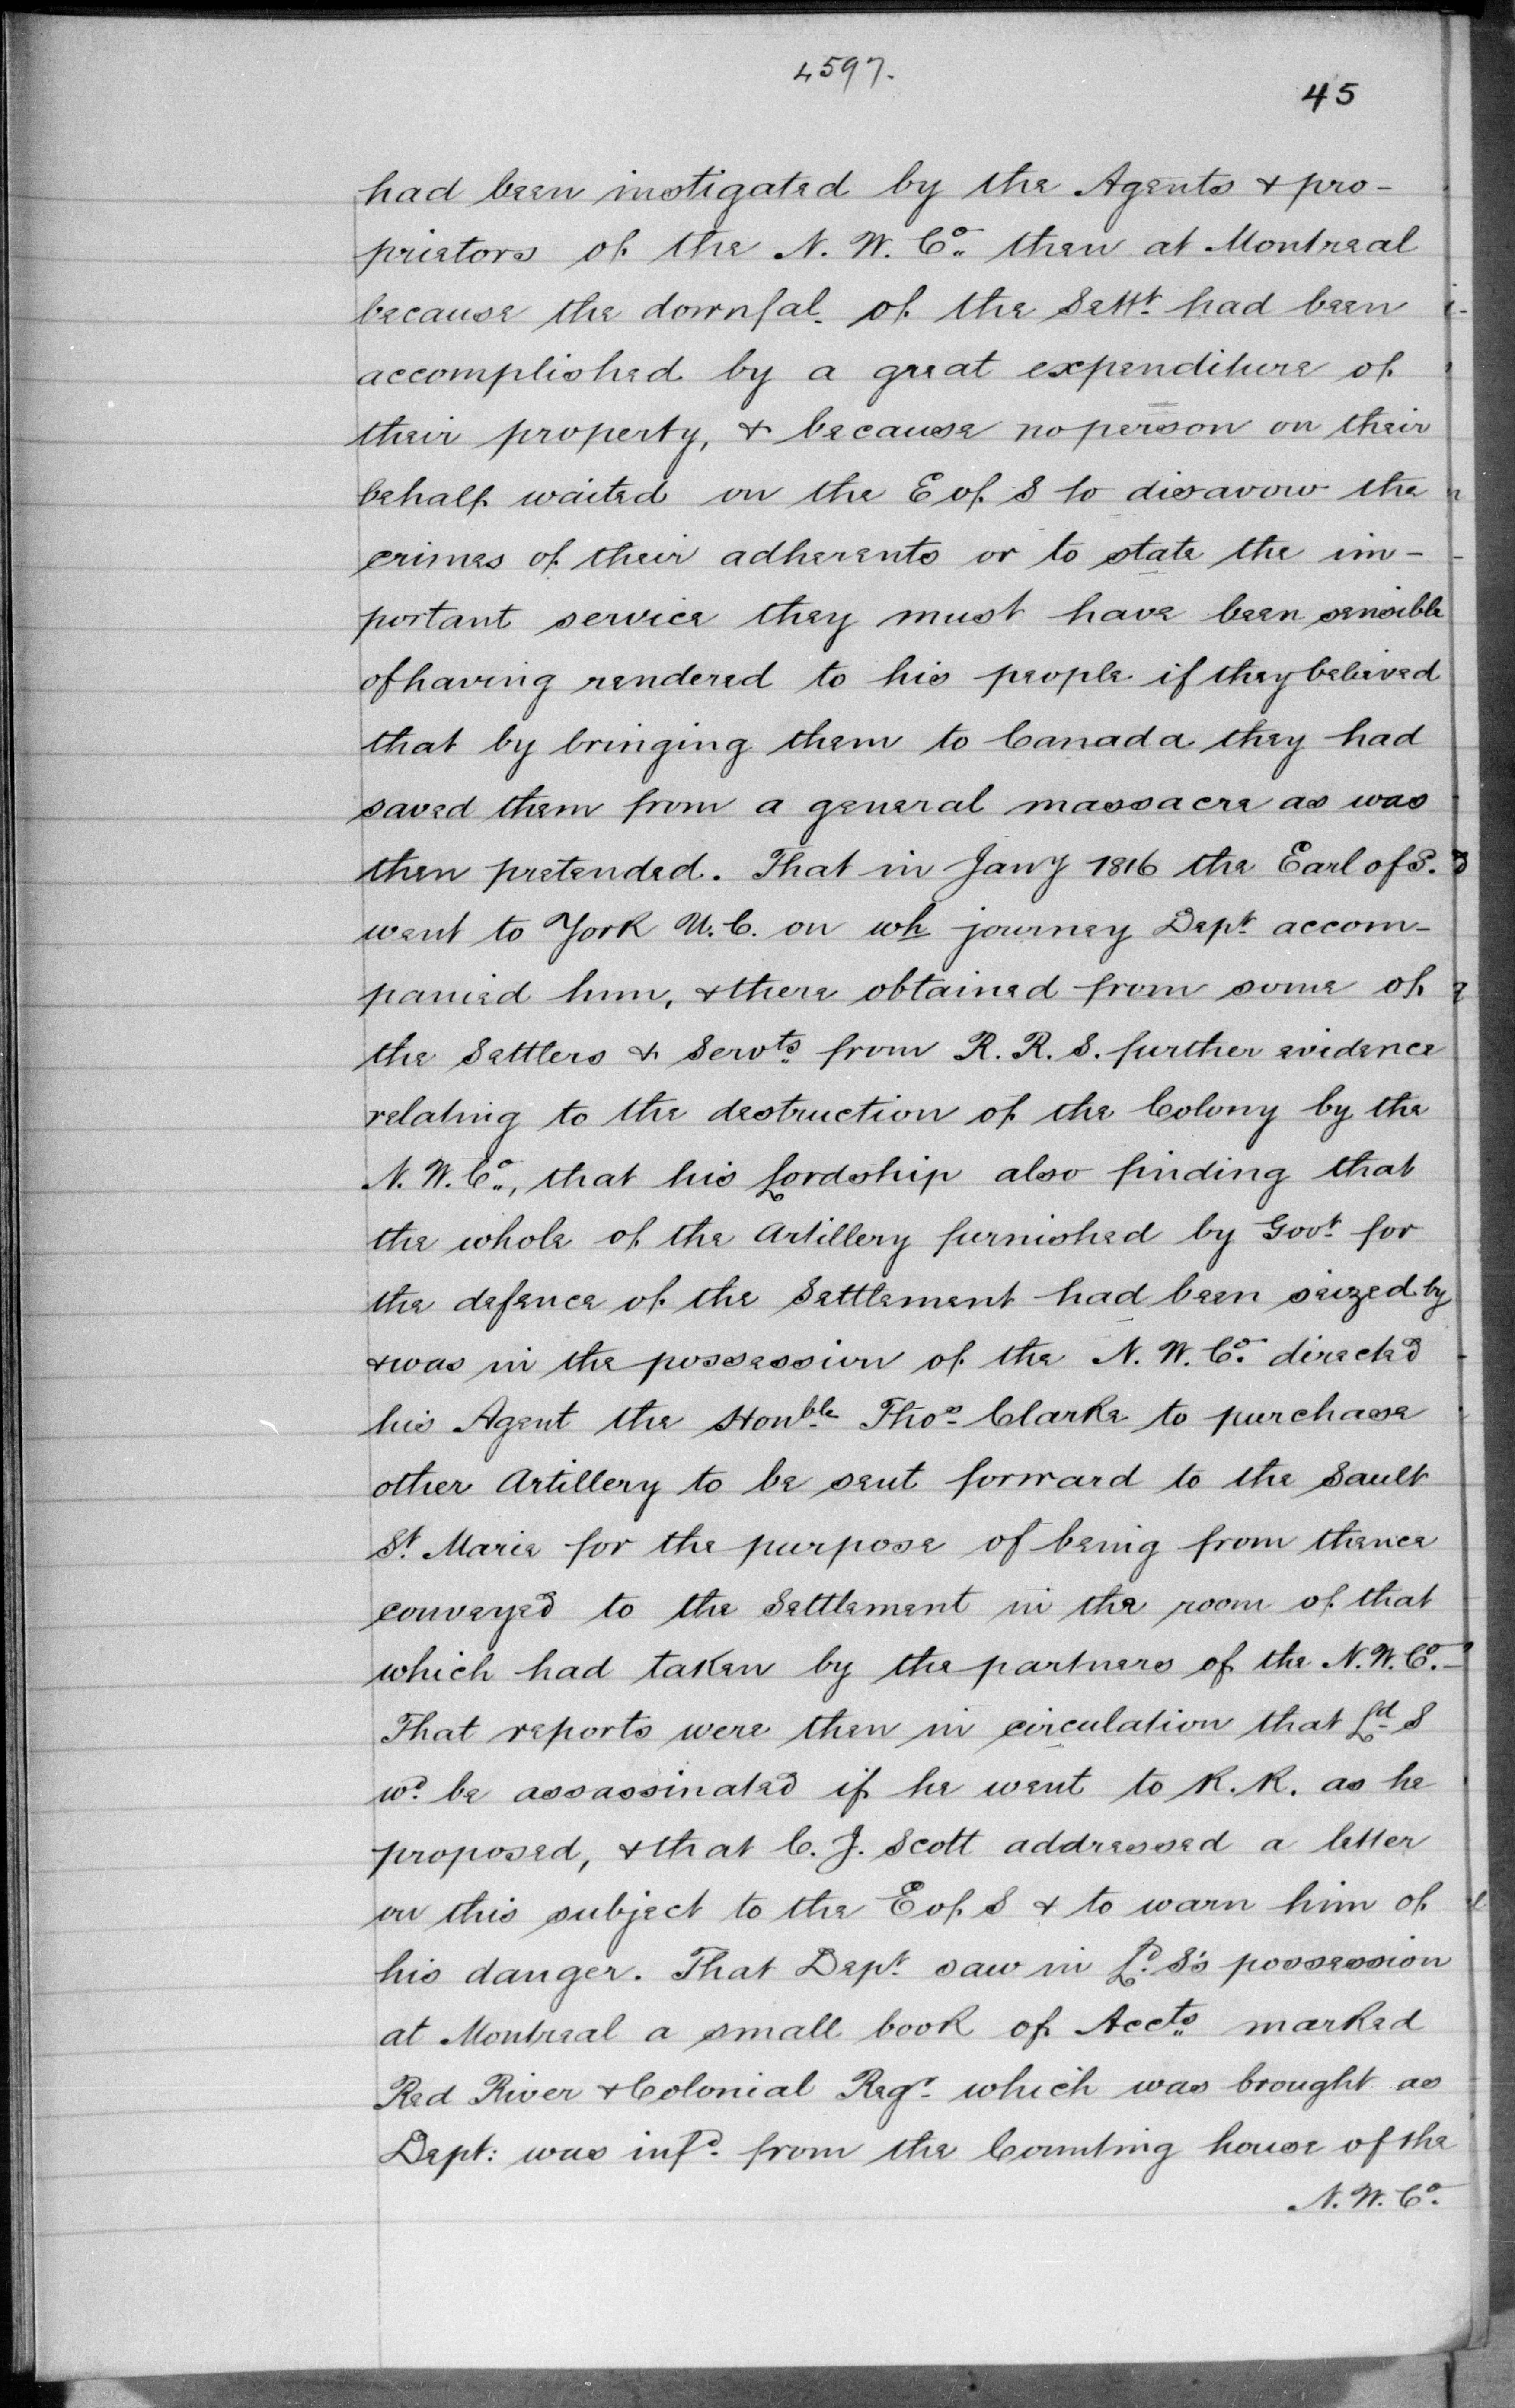 4597.
45
had been instigated by the Agents & pro-
prietors of the N. W. Co. then at Montreal
because the downfal. of the Settt. had been
accomplished by a great expenditure of
their property, & because no person on their
behalf waited on the E of S to disavow the
crimes of their adherents or to state the im-
portant service they must have been sensible
of having rendered to his people if they believed
that by bringing them to Canada they had
saved them from a general massacre as was
then pretended. That in Jany 1816 the Earl of S.
went to York U. C. on wh journey Dept. accom-
panied him, & there obtained from some of
the Settlers & Servts. from R. R. S. further evidence
relating to the destruction of the Colony by the
N. W. Co., that his Lordship also finding that
the whole of the Artillery furnished by Govt. for
the defence of the Settlement had been seized by
& was in the possession of the N. W. Co. directed
his Agent the Honble. Thos. Clarke to purchase
other Artillery to be sent forward to the Sault
St. Marie for the purpose of being from thence
conveyed to the Settlement in the room of that
which had taken by the partners of the N. W. Co.-
That reports were then in circulation that Ld. S
wd. be assassinated if he went to R. R. as he
proposed, & that C. J. Scott addressed a letter
on this subject to the E of S & to warn him of
his danger. That Dept. saw in Ld. S's possession
at Montreal a small book of Accts. marked
Red River & Colonial Regr. which was brought as
Dept: was infd. from the Counting house of the
N. W. Co.